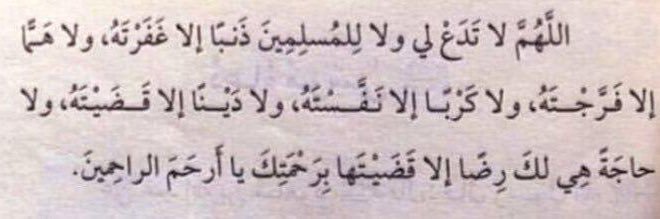 اللَّهُمَّ لا تَدَعْ لي ولا لِلمُسلِمِينَ ذَنبًا إلا غَفَرْتَهُ، ولا هَمًّا
إلا فَرَّجْـتَهُ، ولا كَرْبًـا إلا نَـفَّـسْـتَهُ، ولا دَيْـنًـا إلا قَـضَيْـتَهُ، ولا
حاجَةً هِي لكَ رِضًا إلا قَضَيْتَها بِرَحْمَتِكَ يا أَرحَمَ الراحِمِينَ.